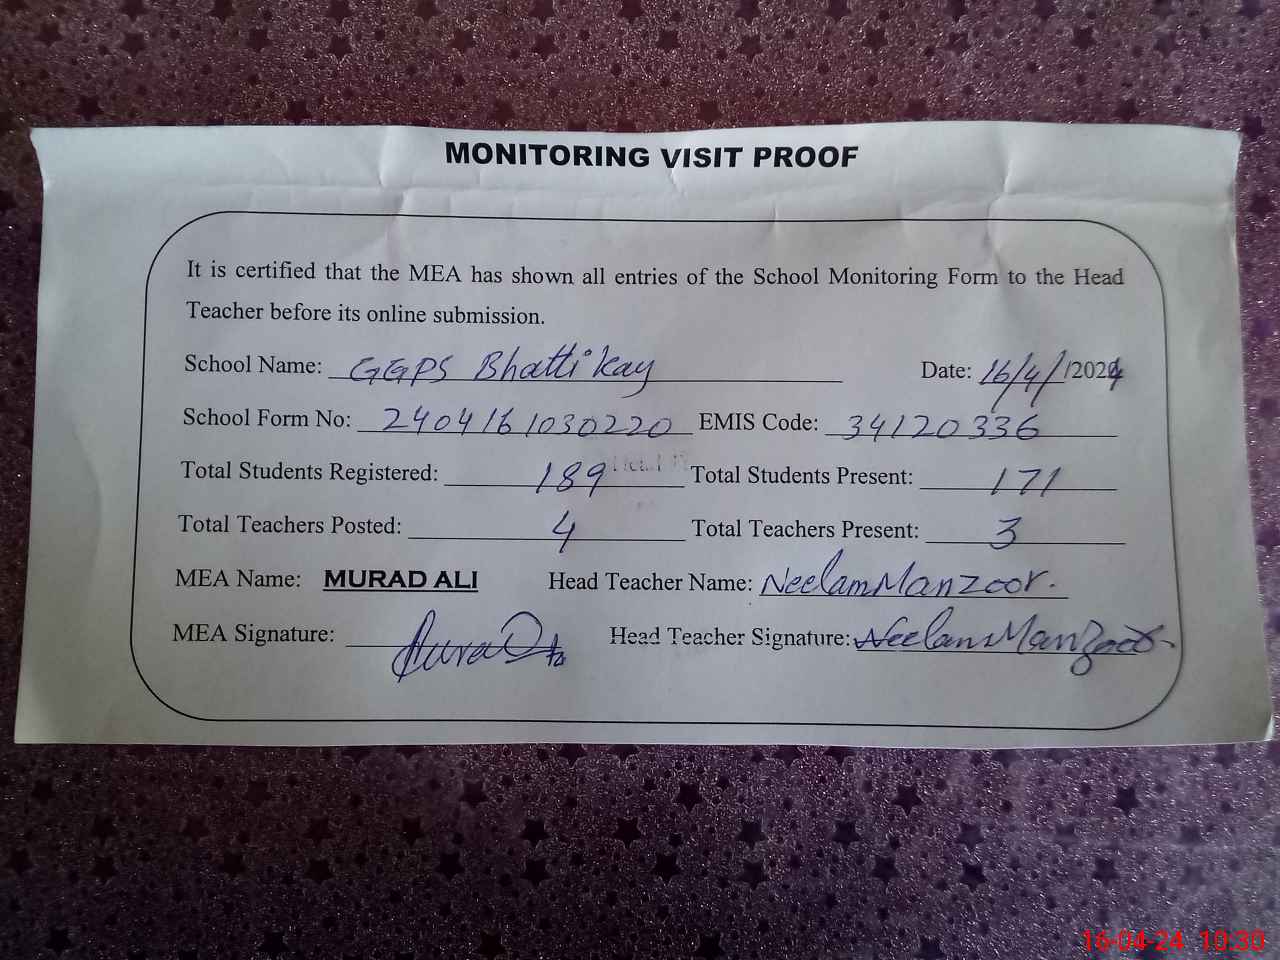 MONITORING VISIT PROOF
It is certified that the MEA has shown all entries of the School Monitoring Form to the Head
Teacher before its online submission.
School Name: GGPS Bhatti kay Date: 16/4/2024
School Form No: 2404161030220 EMIS Code: 34120336
Total Students Registered: 189 Total Students Present: 171
Total Teachers Posted: 4 Total Teachers Present: 3
MEA Name: MURAD ALI Head Teacher Name: Neelam Manzoor.
MEA Signature: Head Teacher Signature: Neelam Manzoor
16-04-24 10:30